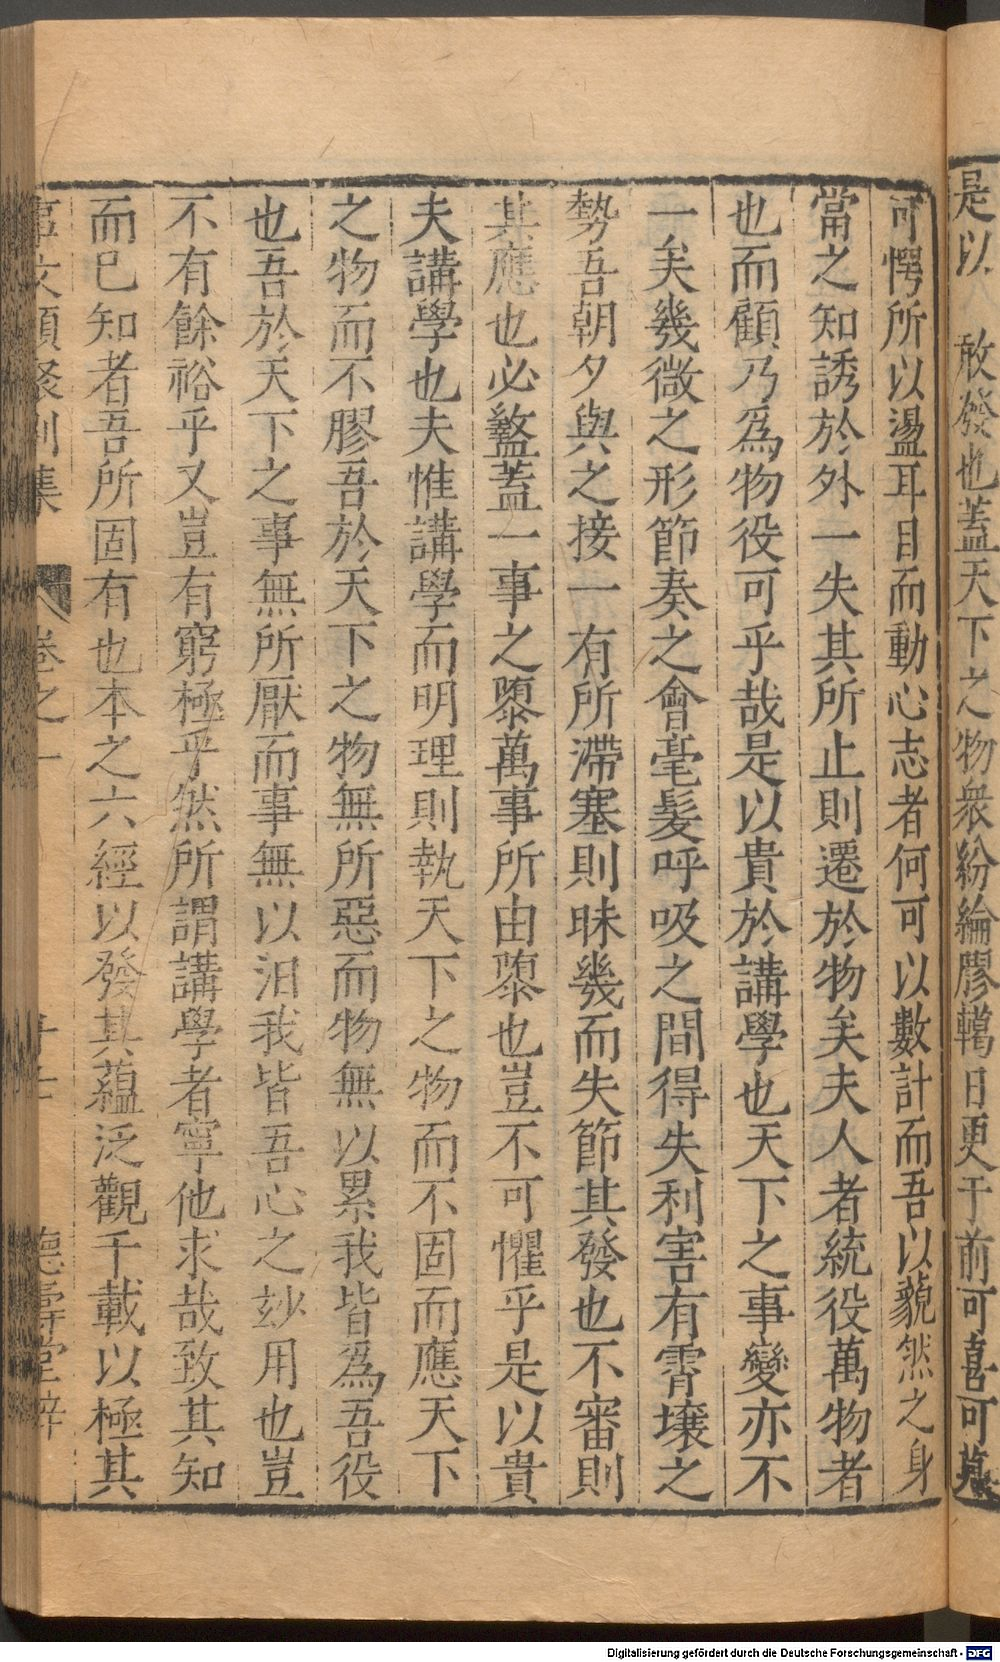 是以　敢發也蓋天下之物衆紛綸膠轕日更于前可喜可慕
可愕所以盪耳目而動心志者何可以數計而吾以藐然之身
當之知誘於外一失其所止則遷於物矣夫人者統役萬物者
也而顧乃爲物役可乎哉是以貴於講學也天下之事變亦不
一矣幾微之形節奏之會毫髮呼吸之間得失利害有霄壤之
勢吾朝夕與之接一有所滯塞則昧幾而失節其發也不審則
其應也必盭蓋一事之隳萬事所由隳也豈不可懼乎是以貴
夫講學也夫惟講學而明理則執天下之物而不固而應天下
之物而不膠吾於天下之物無所惡而物無以累我皆爲吾役
也吾於天下之事無所厭而事無以汨我皆吾心之妙用也豈
不有餘裕乎又豈有窮極乎然所謂講學者寧他求哉致其知
而已知者吾所固有也本之六經以發其蘊泛觀千載以極其
事文類聚別集　卷之一　德壽堂梓
Digitalisierung gefördert durch die Deutsche Forschungsgemeinschaft - DFG